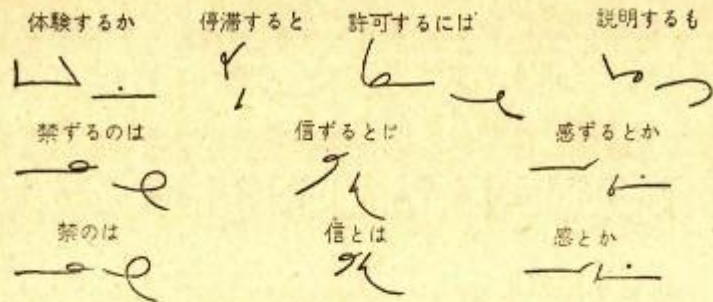 体験するか 停滞すると 許可するには 説明するも
禁ずるのは 信ずるとは 感ずるとか
禁のは 信とは 感とか